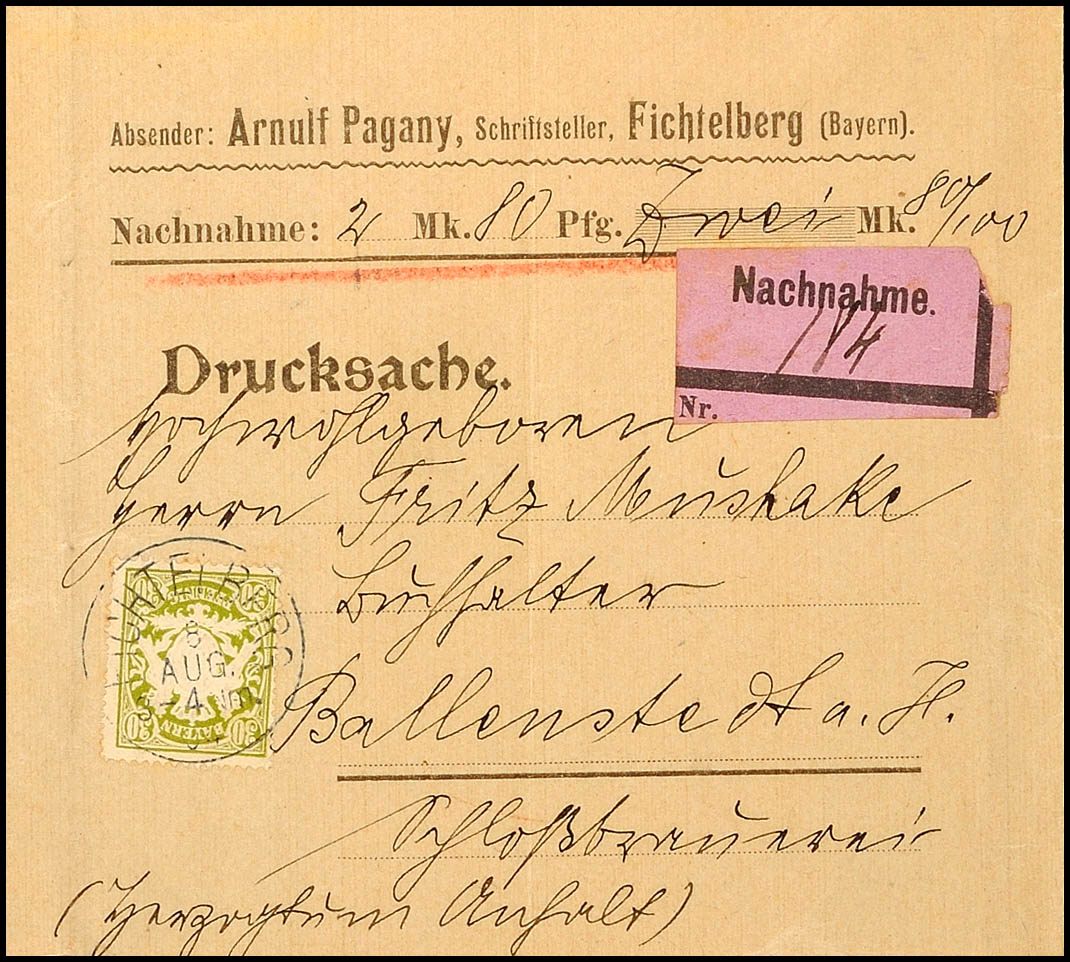 Absender: Arnulf Pagany, Schriftsteller, Fichtelberg (Bayern).
Nachnahme: 2 Mk. 80 Pfg. Zwei Mk. 80/100
Nachnahme.
184
Nr.
Drucksache.
Hochwohlgeboren
Herrn Fritz Mushake
Buchhalter
FICHTELBERG
8
AUG.
3-4 Nm.
30 30
BAYERN
30 30
Ballenstedt a. H.
Schloßbrauerei
(Herzogtum Anhalt)